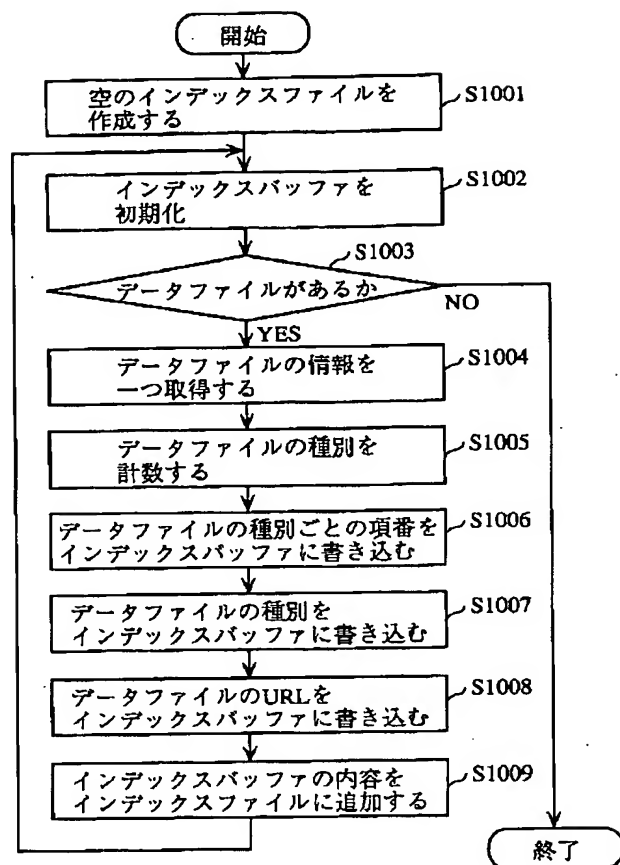 開始
空のインデックスファイルを
作成する
S1001
インデックスバッファを
初期化
S1002
S1003
データファイルがあるか
NO
YES
データファイルの情報を
一つ取得する
S1004
データファイルの種別を
計数する
S1005
データファイルの種別ごとの項番を
インデックスバッファに書き込む
S1006
データファイルの種別を
インデックスバッファに書き込む
S1007
データファイルのURLを
インデックスバッファに書き込む
S1008
インデックスバッファの内容を
インデックスファイルに追加する
S1009
終了